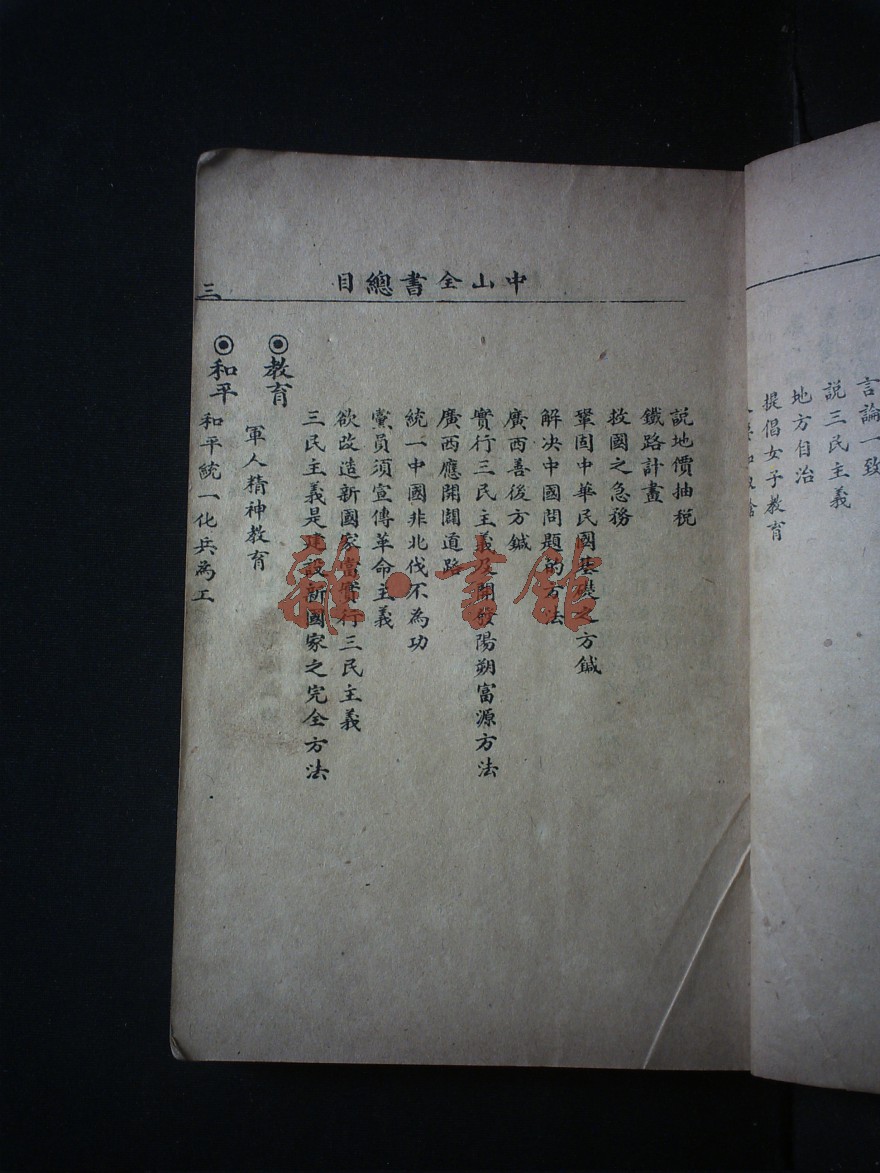 言論一致
說三民主義
地方自治
提倡女子教育
中山全書總目
三
說地價抽稅
鐵路計畫
救國之急務
鞏固中華民國基礎之方鍼
解決中國問題的方法
廣西善後方鍼
實行三民主義及開發陽朔富源方法
廣西應開闢道路
統一中國非北伐不為功
黨員須宣傳革命主義
欲改造新國家當實行三民主義
三民主義是建設新國家之完全方法
◉教育
軍人精神教育
◉和平
和平統一化兵為工
雜·書館